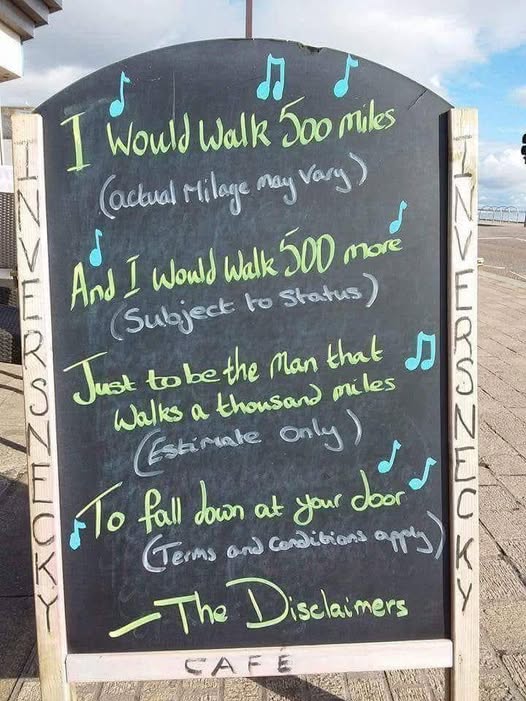 I Would Walk 500 miles
(actual Milage may vary)
And I Would Walk 500 more
(Subject to Status)
Just to be the Man that
Walks a thousand miles
(Estimate only)
To fall down at your door
(Terms and Conditions apply)
– The Disclaimers
INVERSNECKY
INVERSNECKY
CAFE